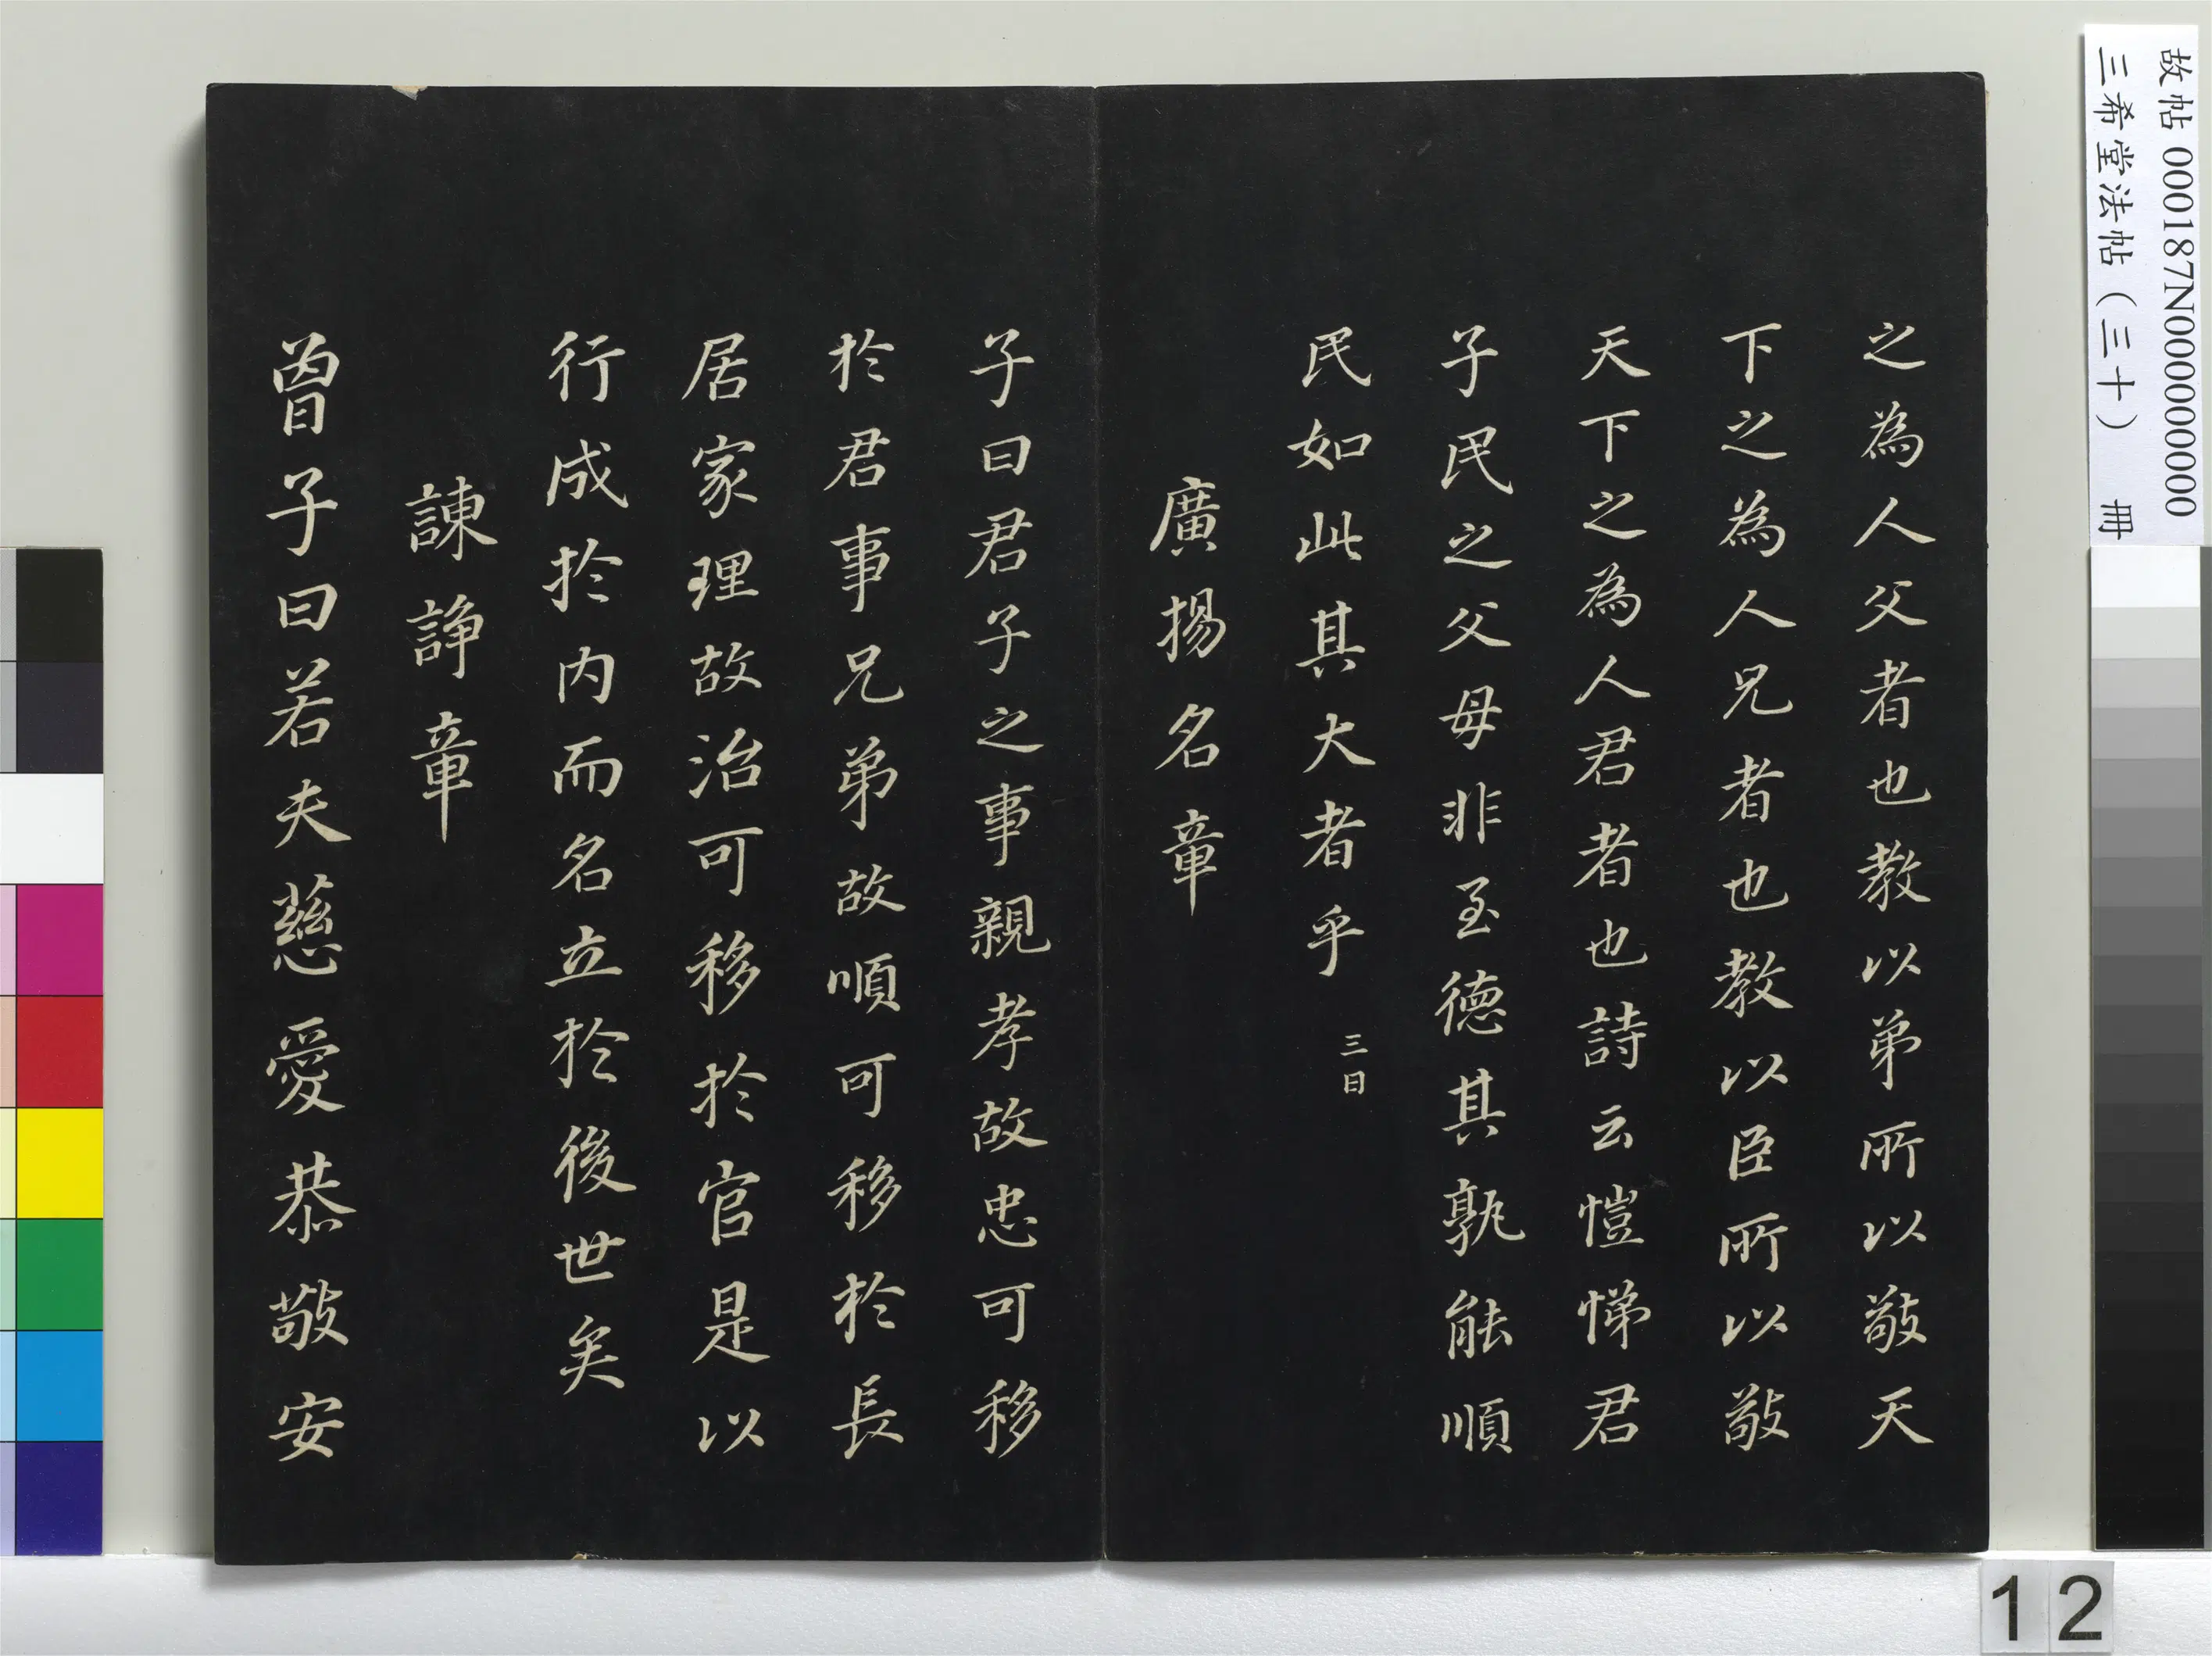 之為人父者也教以弟所以敬天
下之為人兄者也教以臣所以敬
天下之為人君者也詩云愷悌君
子民之父母非至德其孰能順
民如此其大者乎 三日
廣揚名章
子曰君子之事親孝故忠可移
於君事兄弟故順可移於長
居家理故治可移於官是以
行成於内而名立於後世矣
諫諍章
曾子曰若夫慈愛恭敬安
故帖 000187N000000000
三希堂法帖（三十） 冊
12